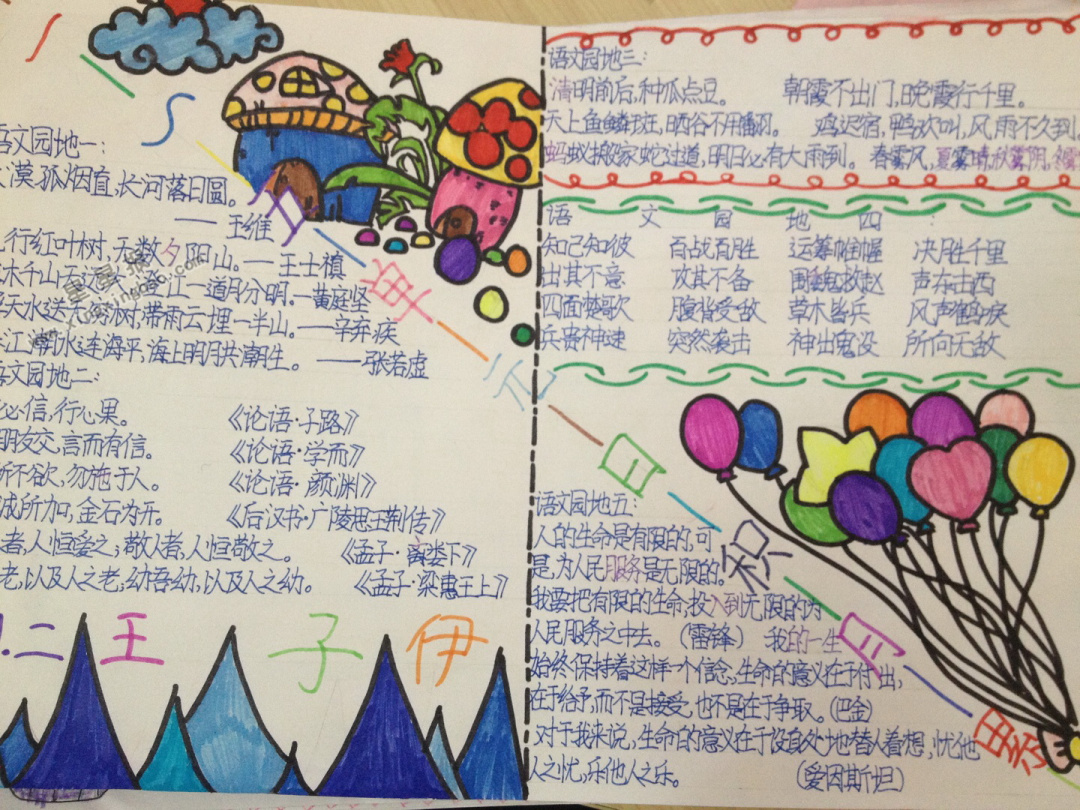 语文园地一:
漠孤烟直,长河落日圆。
——王维
行红叶树,无数夕阳山。——王士禛
木千山 一道月分明。——黄庭坚
天水送 树,带雨云埋一半山。——辛弃疾
江潮水连海平,海上明月共潮生。——张若虚
语文园地二:
必信,行必果。 《论语·子路》
朋友交,言而有信。 《论语·学而》
所不欲,勿施于人。 《论语·颜渊》
诚所加,金石为开。 《后汉书·广陵思王荆传》
者,人恒爱之;敬人者,人恒敬之。 《孟子·离娄下》
老,以及人之老;幼吾幼,以及人之幼。 《孟子·梁惠王上》
二 王子伊
单元日积月累
语文园地三:
清明前后,种瓜点豆。 朝霞不出门,晚霞行千里。
天上鱼鳞斑,晒谷不用翻。 鸡迟宿,鸭欢叫,风雨不久到
蚂蚁搬家蛇过道,明日必有大雨到。 春雾风,夏雾晴,秋雾阴,
语文园地四:
知己知彼 百战百胜 运筹帷幄 决胜千里
出其不意 攻其不备 围魏救赵 声东击西
四面楚歌 腹背受敌 草木皆兵 风声鹤唳
兵贵神速 突然袭击 神出鬼没 所向无敌
语文园地五:
人的生命是有限的,可
是,为人民服务是无限的。
我要把有限的生命,投入到无限的为
人民服务之中去。(雷锋) 我的一生
始终保持着这样一个信念,生命的意义在于付出,
在于给予,而不是接受,也不是在于争取。(巴金)
对于我来说,生命的意义在于设身处地替人着想,忧他
人之忧,乐他人之乐。 (爱因斯坦)